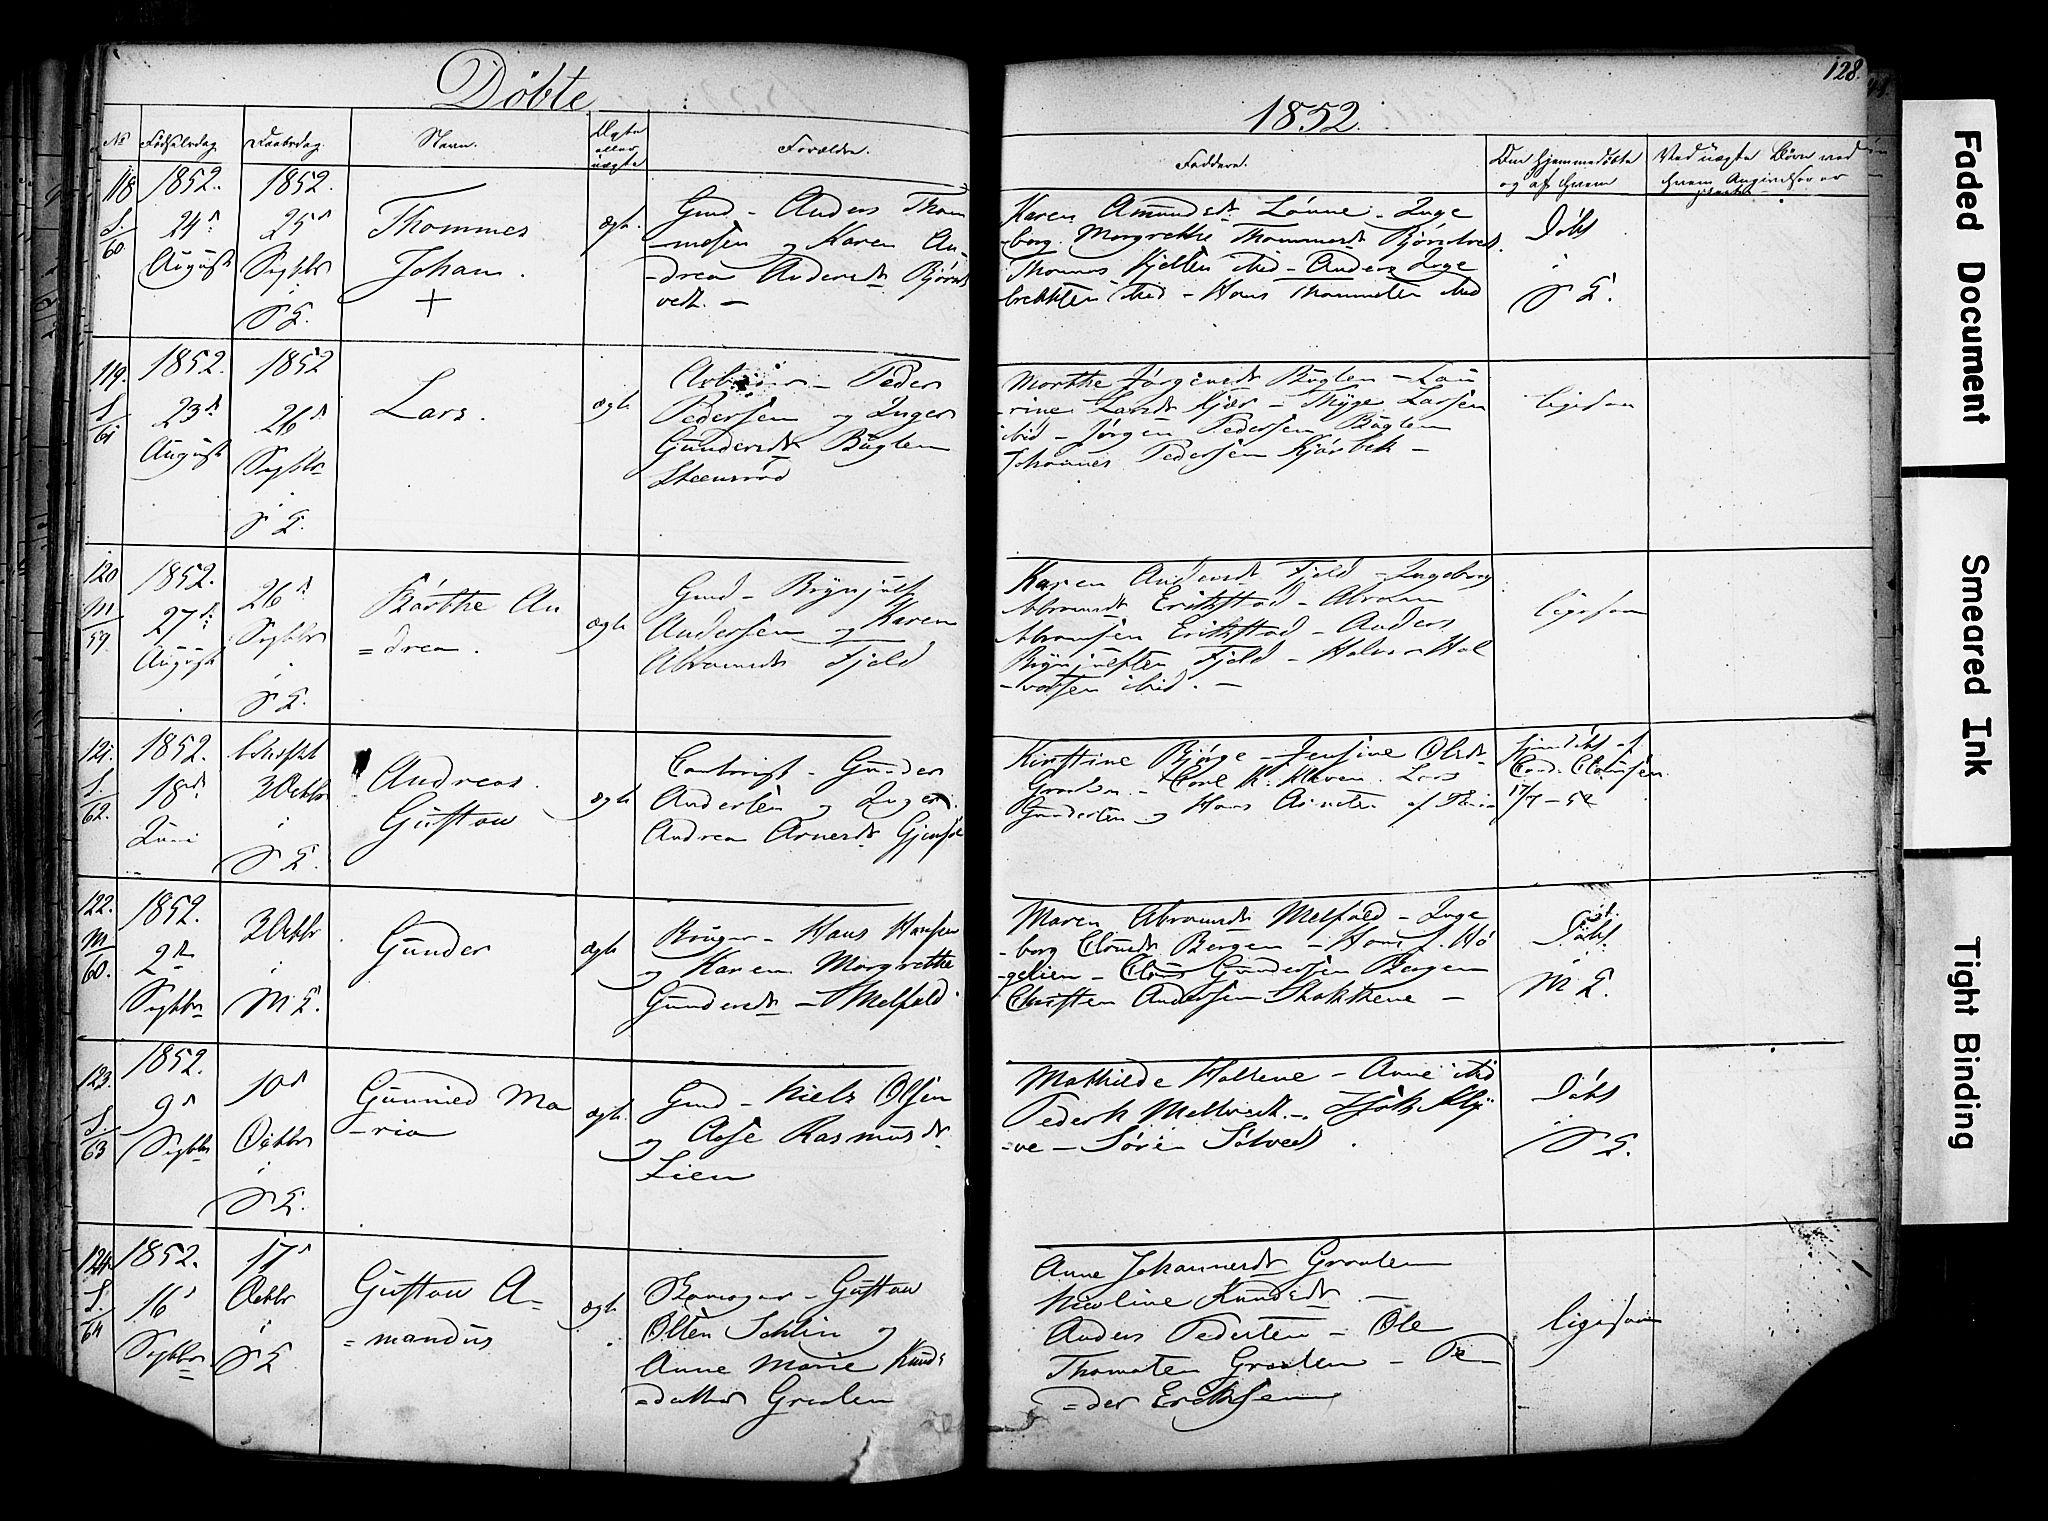 Døbte
1852.
128.
No
Fødselsdag
Daabsdag.
Navn.
Ægte
eller
uægte
Forældre.
Faddere.
Om hjemmedøbte
og af hvem
Ved uægte Børn ved
hvem Angivelsen er
118
S.
60
1852.
24de
August
1852.
25de
Septbr
i
S E.
Thommes
Johan.
+
ægte
Gmd - Anders Thom
-mesen og Karen An-
-drea Andersdt Bjørnt
vedt. -
Karen Amundsdt Lønne - Inge
-borg Margrethe Thommesdt
Thomas Kjeldsen ibid - Anders Inge
brektsen ibid - Hans Thommesen ibid
Døbt
i
S E.
119.
S.
61
1852.
23de
August
1852
26de
Septbr
i
S E.
Lars.
ægte
Arbeider - Peder
Pedersen og Inger
Gundersdt Bøglen
Steensrød
Marthe Jørgensdt Bøglen - Lau
-rine Larsdt Kjær - Thyge Larsen
ibid - Jørgen Pedersen Bøglen
Johannes Pedersen Kjørbek -
ligesom
120
M
59
1852.
27de
August
26de
Septbr
i
S E.
Børthe An
=drea.
ægte
Gmd - Brynjulf
Andersen og Karen
Abramsdt Fjeld
Karen Andersdt Fjeld - Ingeborg
Abramsdt Erikstad - Abram
Abramsen Erikstad - Anders
Brynjulfsen Fjeld - Halvor Hal
-vorsen ibid. -
ligesom
121.
S.
62.
1852.
18de
Juni
3 Octbr
i
S E.
Andreas
Gustav
ægte
Gunder
Andersen og Inger
Andrea Arnesdt
Kirstine Bjørge - Jensine Olsdt
Graaten - Carl K. Kleven. Lars
Gundersen og Hans Arnesen af
Hjemdøbt af
Cand. Clausen
17/7 - 52
122.
M
60.
1852.
2de
Septbr
3 Octbr
i
M. E.
Gunder
ægte
Bruger - Hans Hansen
og Karen Margrethe
Gundersdt - Melfald.
Maren Abramsdt Melfald - Inge
-borg Clausdt Bergen - Hans J. Hø
-gelien - Claus Gundersen Bergen
Christen Andersen -
Døbt
i
M E.
123.
S.
63
1852.
9de
Septbr
10de
Octbr
i
S E.
Gunnild Ma
-ria
ægte
Gmd - Niels Olsen
og Aase Rasmusdt
Lien
Mathilde Haltene - Anne ibid
=ve - Søren Solvedt.
Døbt
i
S E.
124.
S.
64
1852.
16de
Septbr
17de
Octbr
i
S E
Gustav A-
=mandus
ægte
Gustav
Olsen Schlin og
Anne Marie Knuds
=datter Graaten
Anne Johannesdt Graaten
Nicoline Knudsdt -
Anders Pedersen - Ole
Thomasen Graaten - Pe
=der Eriksen
ligesom
Faded Document
Smeared Ink
Tight Binding